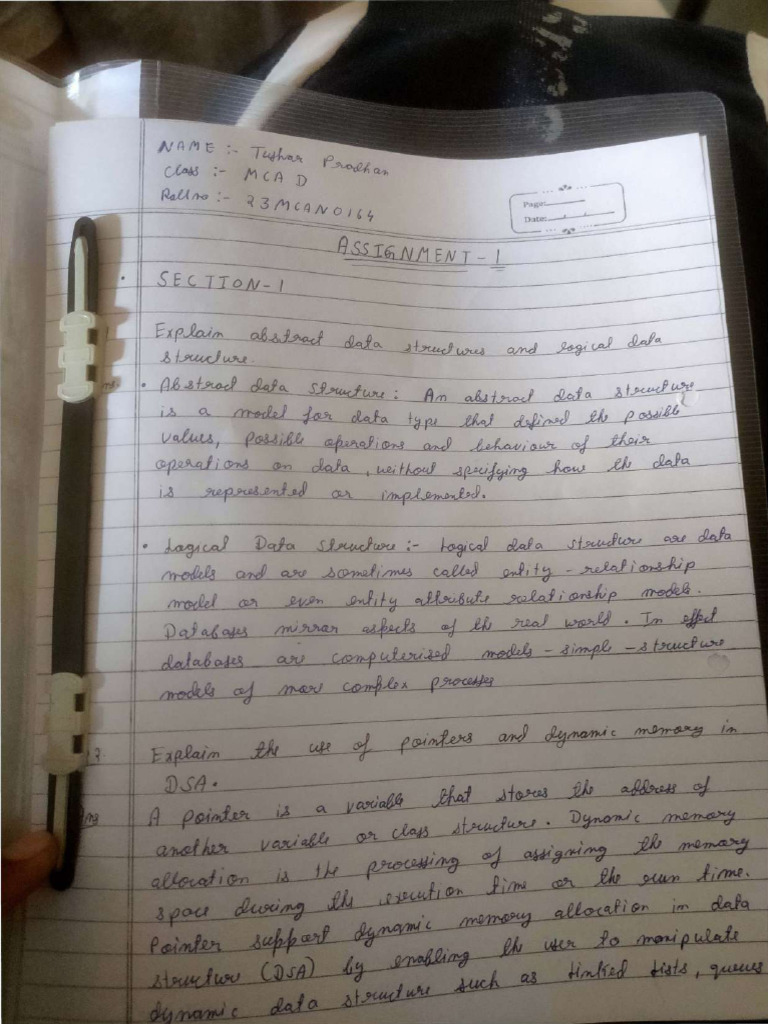 NAME :- Tushar Pradhan
Class :- MCA D
Roll no :- 23MCAN0164
Page:
Date:
ASSIGNMENT-1
SECTION-1
Explain abstract data structures and logical data
structure.
• Abstract data structure: An abstract data structure
is a model for data type that defined the possible
values, possible operations and behaviour of their
operations on data, without specifying how the data
is represented or implemented.
• Logical Data structure :- Logical data structure are data
models and are sometimes called entity-relationship
model or even entity attribute relationship models.
Databases mirror aspects of the real world. In effect
databases are computerised models-simple-structure
models of more complex processes
Explain the use of pointers and dynamic memory in
DSA.
Ans A pointer is a variable that stores the address of
another variable or class structure. Dynamic memory
allocation is the processing of assigning the memory
space during the execution time or the run time.
Pointer support dynamic memory allocation in data
structure (DSA) by enabling the user to manipulate
dynamic data structure such as linked lists, queues